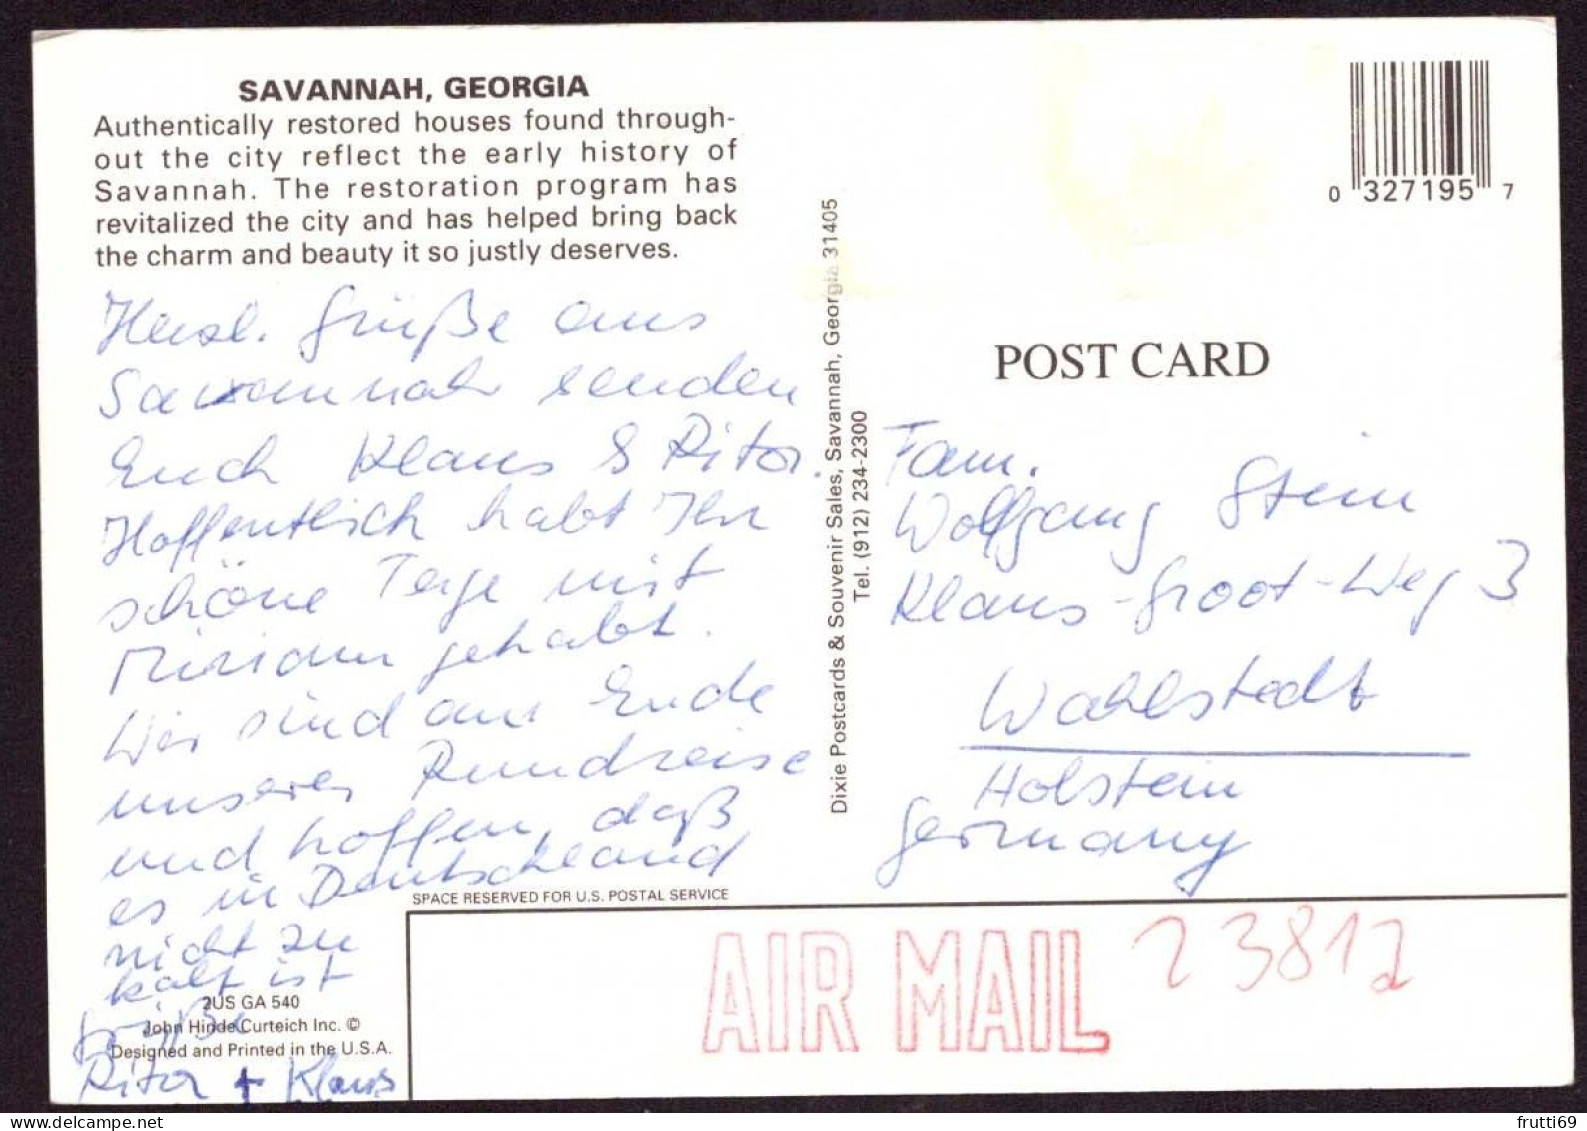 SAVANNAH, GEORGIA
Authentically restored houses found through-
out the city reflect the early history of
Savannah. The restoration program has
revitalized the city and has helped bring back
the charm and beauty it so justly deserves.
Herzl. Grüße aus
Savannah senden
Euch Klaus & Rita.
Hoffentlich habt Ihr
schöne Tage mit
Miriam gehabt.
Wir sind am Ende
unserer Rundreise
und hoffen, daß
es in Deutschland
nicht zu
kalt ist
Grüße
Rita + Klaus
2US GA 540
John Hinde Curteich Inc. ©
Designed and Printed in the U.S.A.
Dixie Postcards & Souvenir Sales, Savannah, Georgia 31405
Tel. (912) 234-2300
0 327195 7
POST CARD
Fam.
Wolfgang Stein
Klaus-Groot-Weg 3
Wahlstedt
Holstein
Germany
SPACE RESERVED FOR U.S. POSTAL SERVICE
AIR MAIL 23812
frutti69